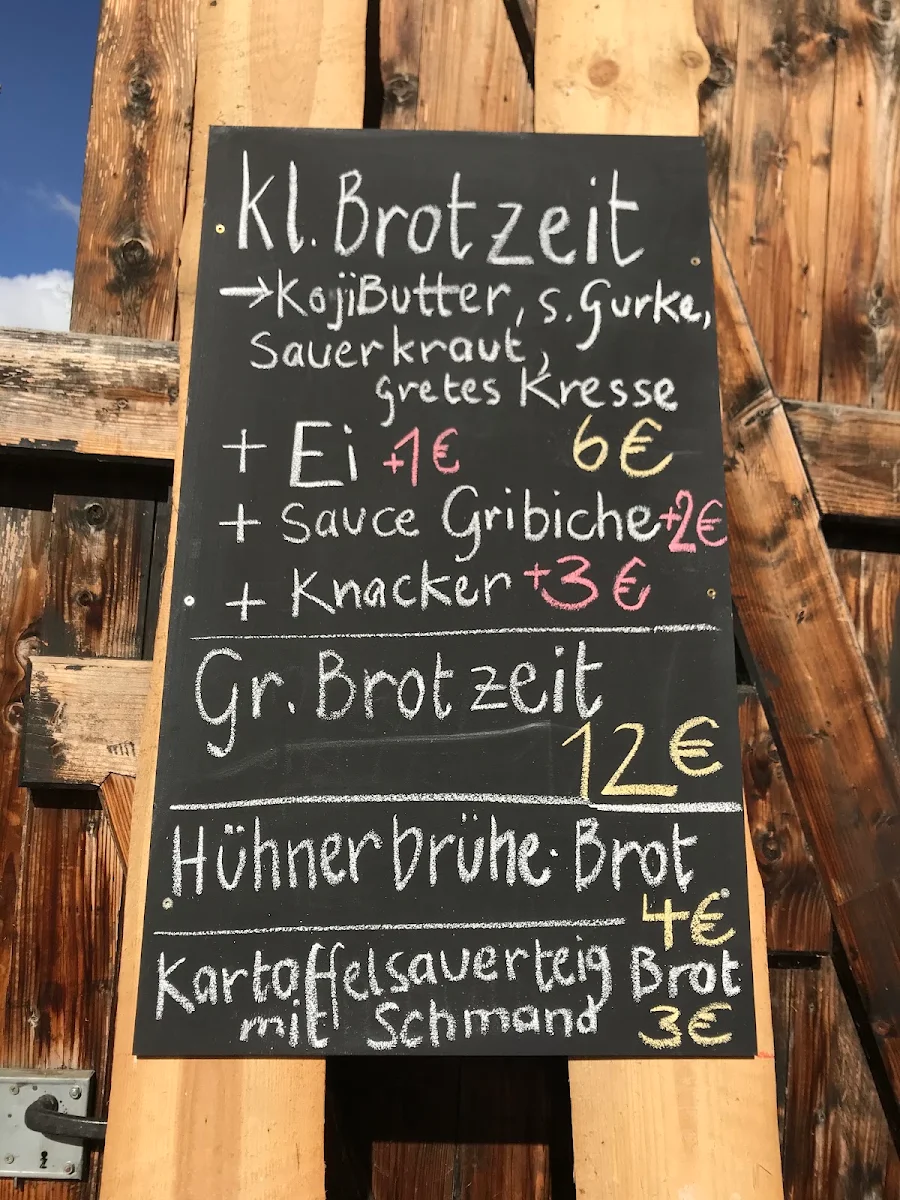 Kl. Brotzeit
→KojiButter, s. Gurke,
Sauerkraut,
gretes Kresse
+ Ei +1€ 6€
+ Sauce Gribiche +2€
+ Knacker +3€
Gr. Brotzeit
12€
Hühnerbrühe. Brot
4€
Kartoffelsauerteig Brot
mit Schmand 3€